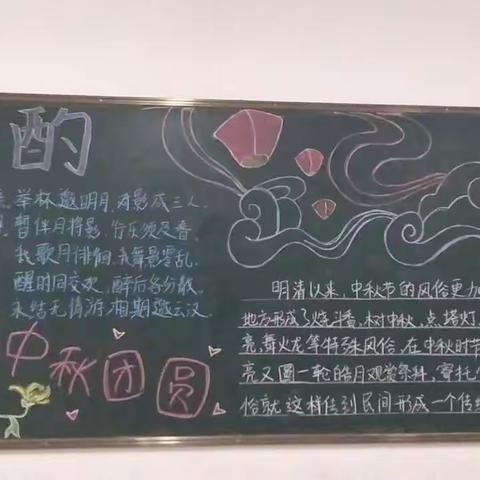 酌
举杯邀明月,对影成三人.
暂伴月将影,行乐须及春.
我歌月徘徊,我舞影零乱.
醒时同交欢,醉后各分散.
永结无情游,相期邈云汉
中秋团圆
明清以来,中秋节的风俗更加
地方形成了烧斗香、树中秋、点塔灯、
亮、舞火龙等特殊风俗,在中秋时节
亮又圆一轮皓月观赏祭拜,寄托
俗就这样传到民间形成一个传统